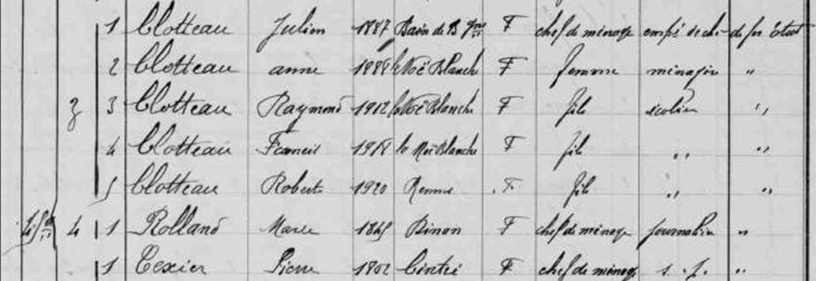 1 Clotteau Julien 1887 Bain de B. F chef de ménage empé de ch. de fer État
2 Clotteau anne 1888 la Noë Blanche F femme ménagère "
3 3 Clotteau Raymond 1912 la Noë Blanche F fils écolier "
4 Clotteau Francis 1918 la Noë Blanche F fils " "
5 Clotteau Robert 1920 Rennes F fils " "
4 1 Rolland Marie F chef de ménage journalière "
1 Texier Pierre Cintré F chef de ménage s. p. "